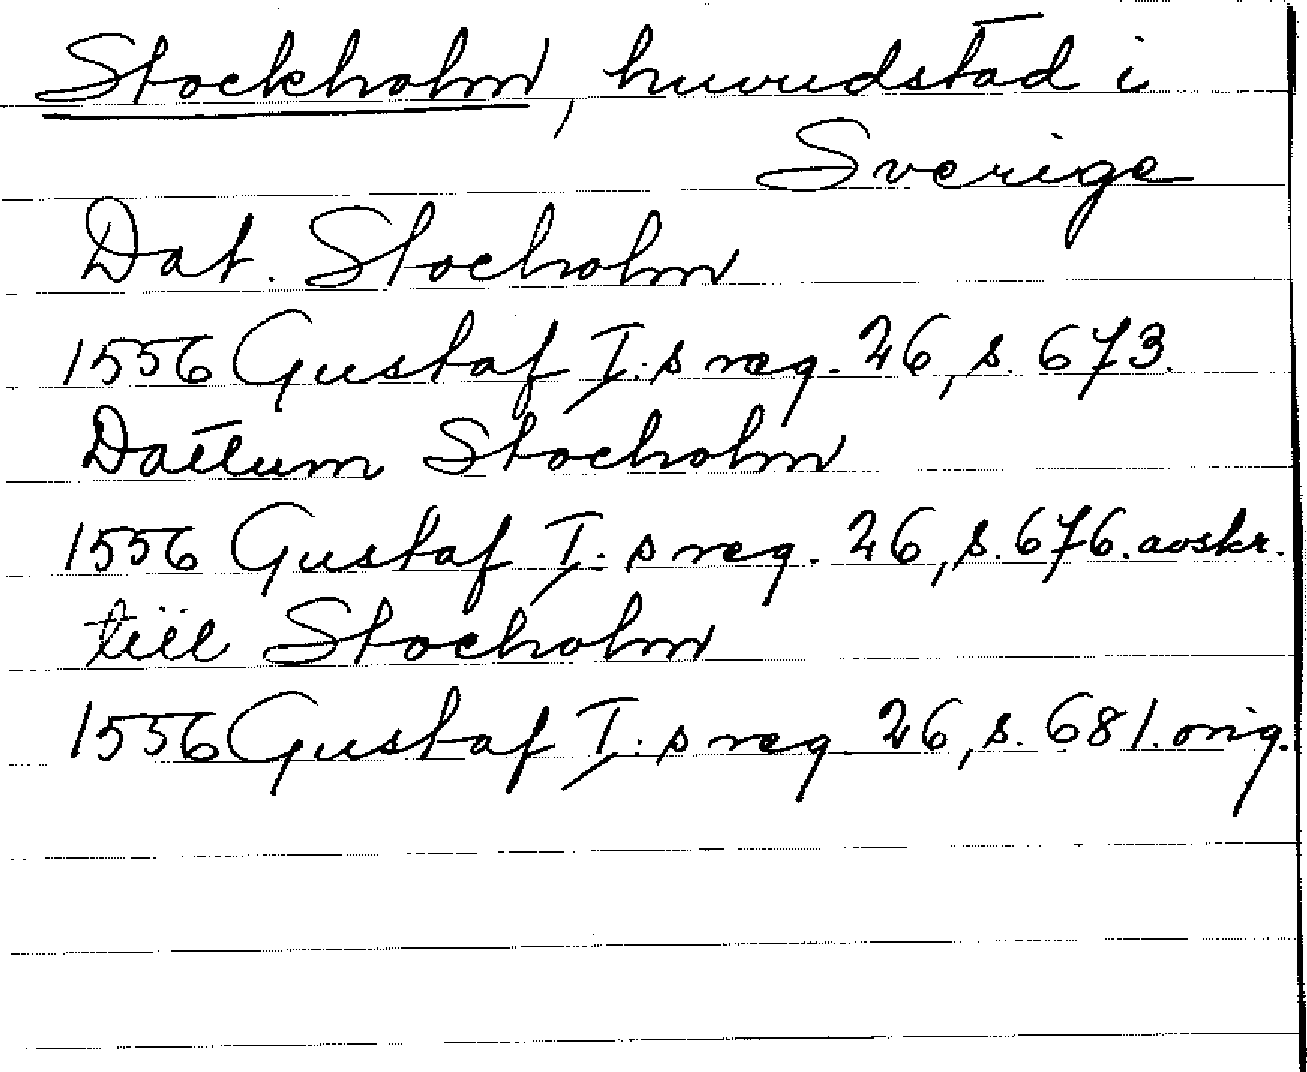 Stockholm, huvudstad i
Sverige
Dat. Stocholm
1556 Gustaf I:s reg. 26, s. 673.
Dattum Stocholm
1556 Gustaf I:s reg. 26, s. 676. avskr.
tiill Stocholm
1556 Gustaf I:s reg. 26, s. 681. orig.